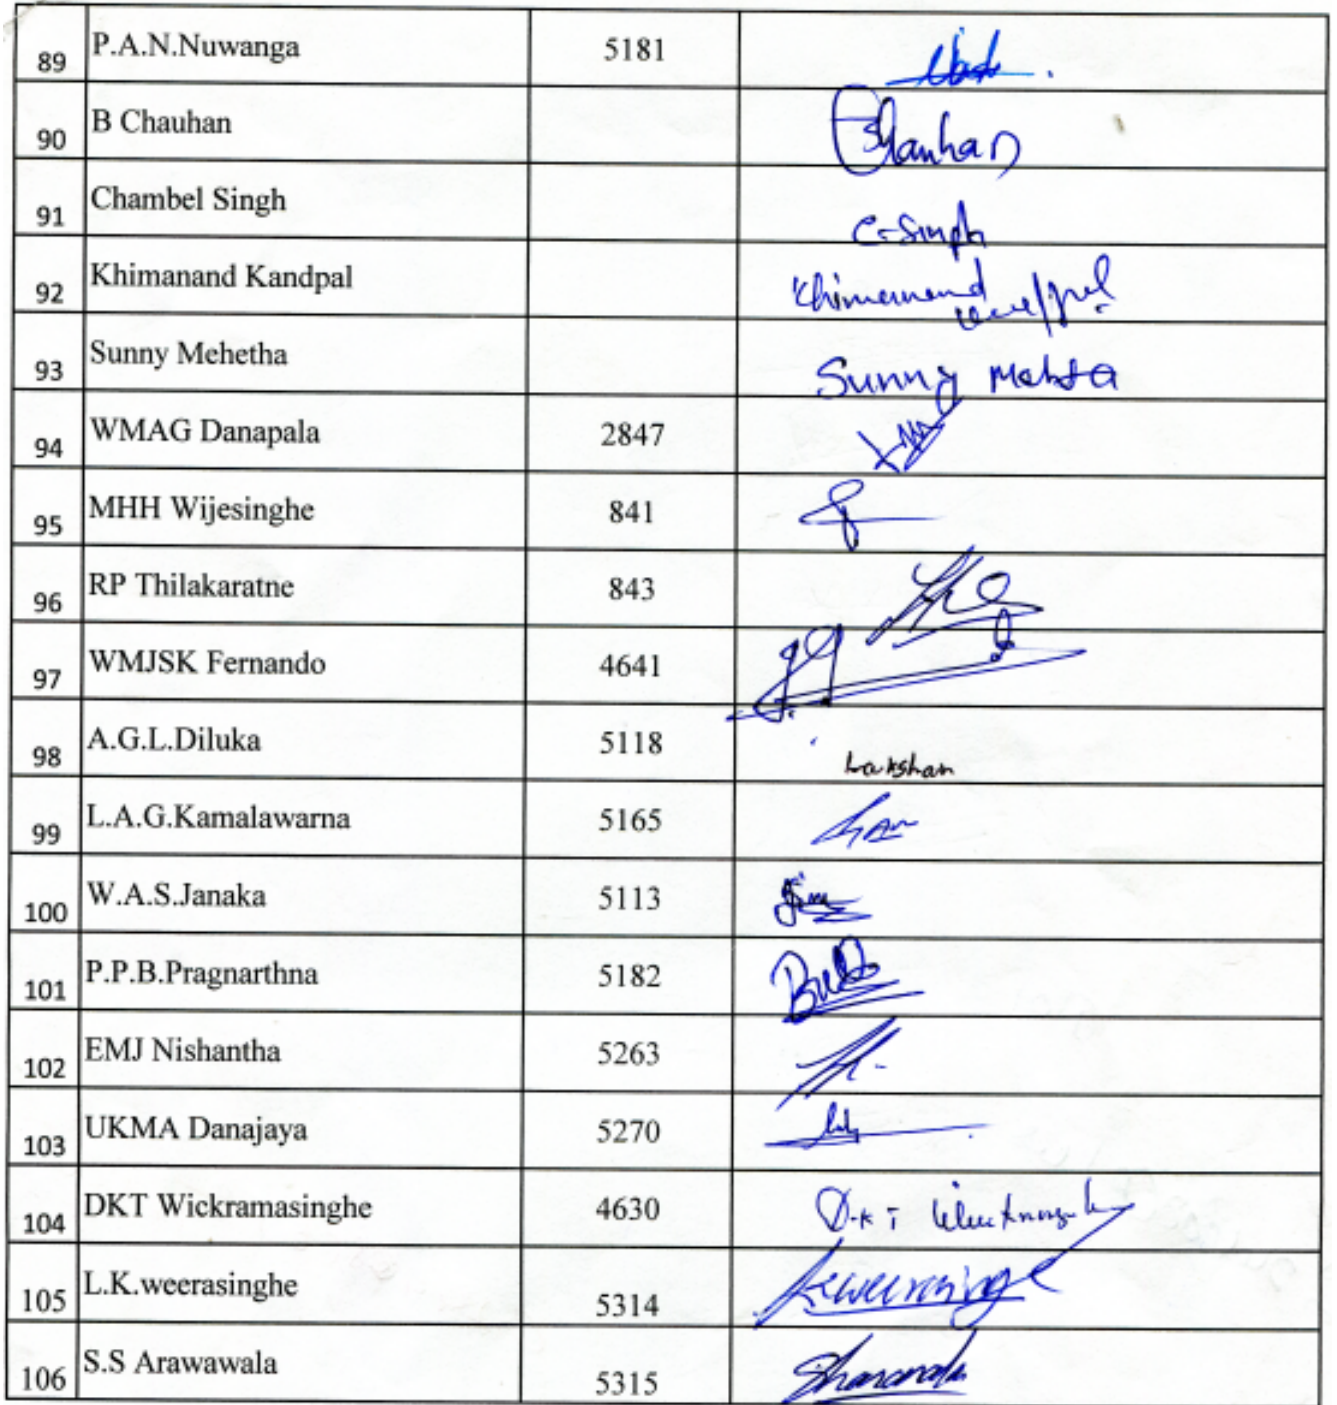 89 P.A.N.Nuwanga 5181
90 B Chauhan Bhauhan
91 Chambel Singh C-Singh
92 Khimanand Kandpal Khimanand
93 Sunny Mehetha Sunny Mehta
94 WMAG Danapala 2847
95 MHH Wijesinghe 841
96 RP Thilakaratne 843
97 WMJSK Fernando 4641
98 A.G.L.Diluka 5118 Lakshan
99 L.A.G.Kamalawarna 5165
100 W.A.S.Janaka 5113
101 P.P.B.Pragnarthna 5182
102 EMJ Nishantha 5263
103 UKMA Danajaya 5270
104 DKT Wickramasinghe 4630 D.K.T
105 L.K.weerasinghe 5314
106 S.S Arawawala 5315